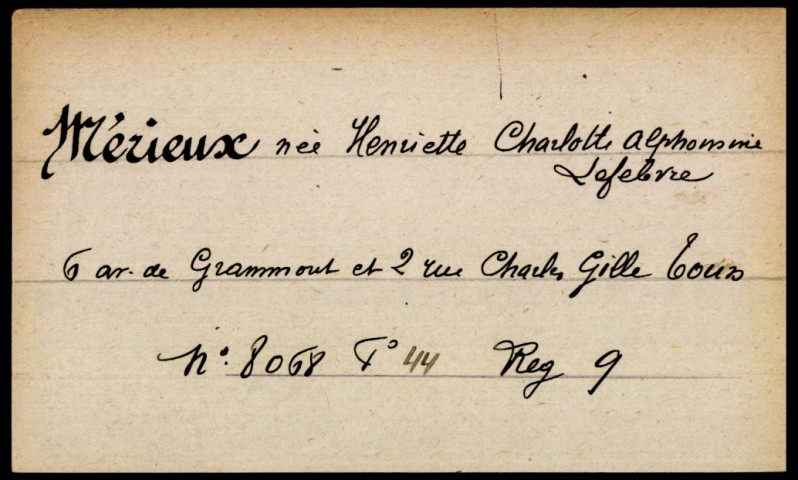 Mérieux née Henriette Charlotte Alphonsine
Lefebvre
6 av. de Grammont et 2 rue Charles Gille Tours
N° 8068 F° 44 Reg 9